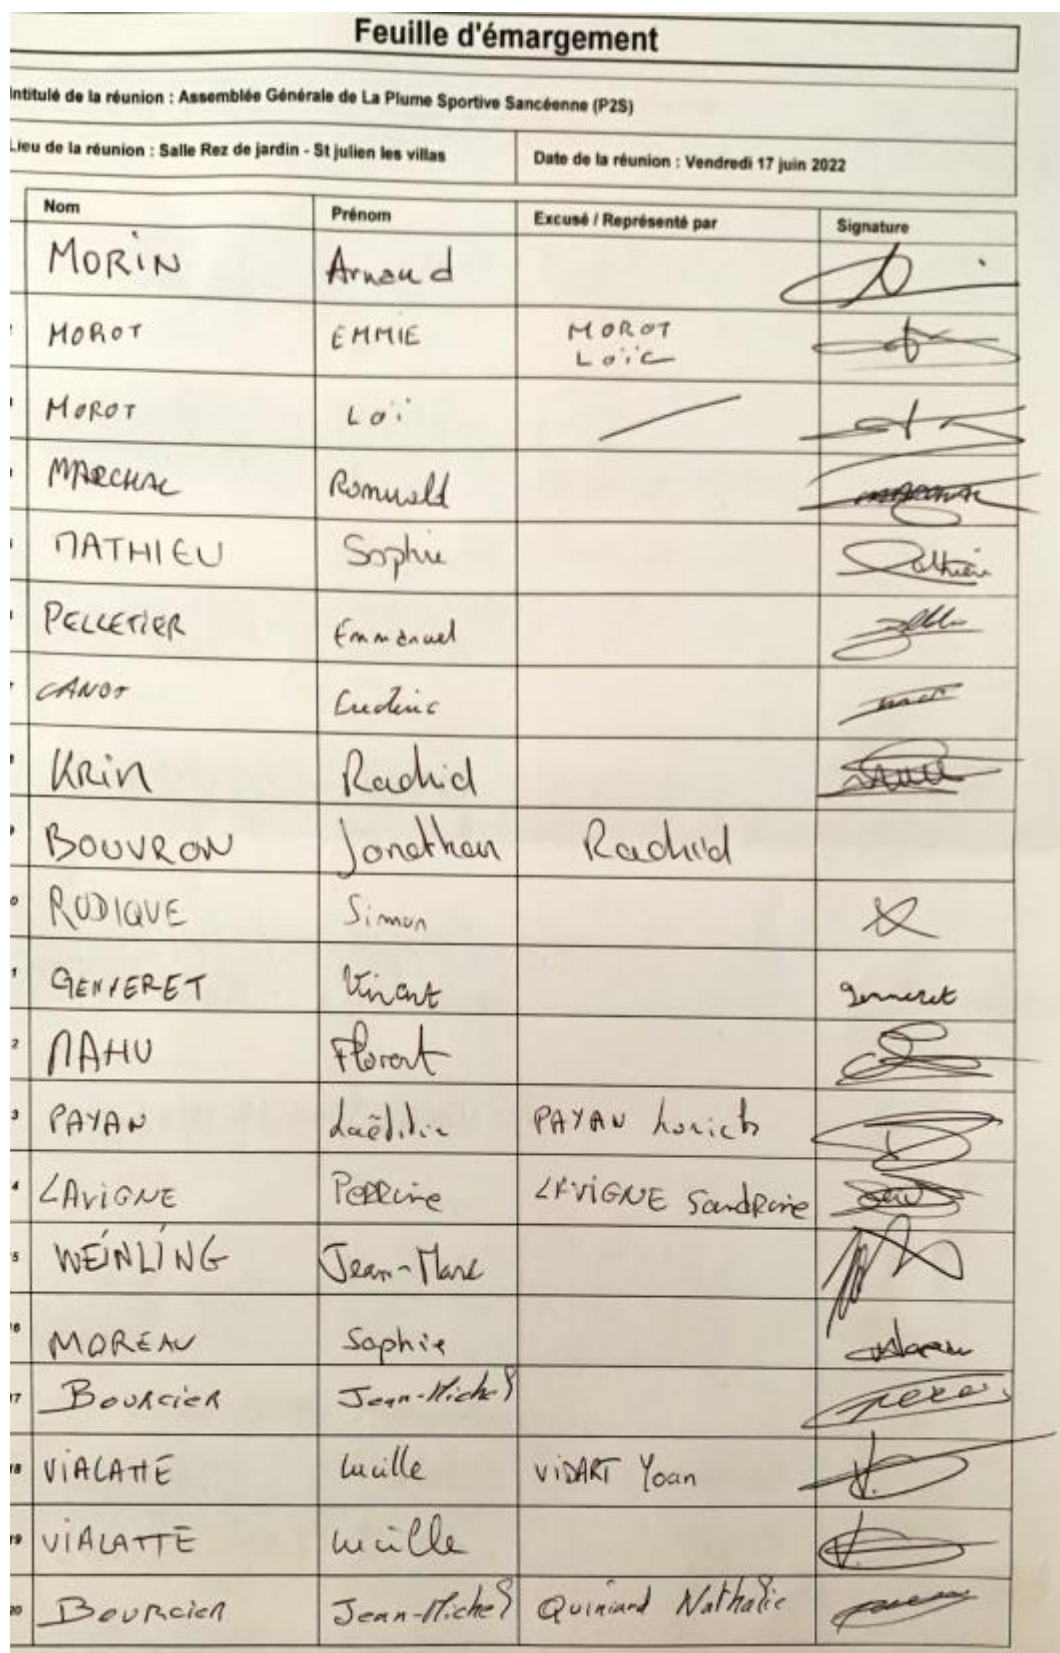 Feuille d'émargement
Intitulé de la réunion : Assemblée Générale de La Plume Sportive Sancéenne (P2S)
Lieu de la réunion : Salle Rez de jardin - St julien les villas Date de la réunion : Vendredi 17 juin 2022
Nom Prénom Excusé / Représenté par Signature
MORIN Arnaud
MOROT EMMIE MOROT
Loïc
MOROT Loï
MARCHAL Romuald
MATHIEU Sophie
PELLETIER Emmanuel
CANOT
KRin Rachid
BOUVRON Jonathan Rachid
RODIQUE Simon
Vincent genneret
MAHU Florent
PAYAN Laëtitia PAYAN
LAViGNE PERRine LAVIGNE SandRine
WEINLING Jean-Marc
MOREAU Sophie
17 BOURCiER Jean-Michel
18 ViALATTE Lucille ViDART Yoan
19 ViALATTE Lucille
20 BOURCiER Jean-Michel Quiniard Nathalie